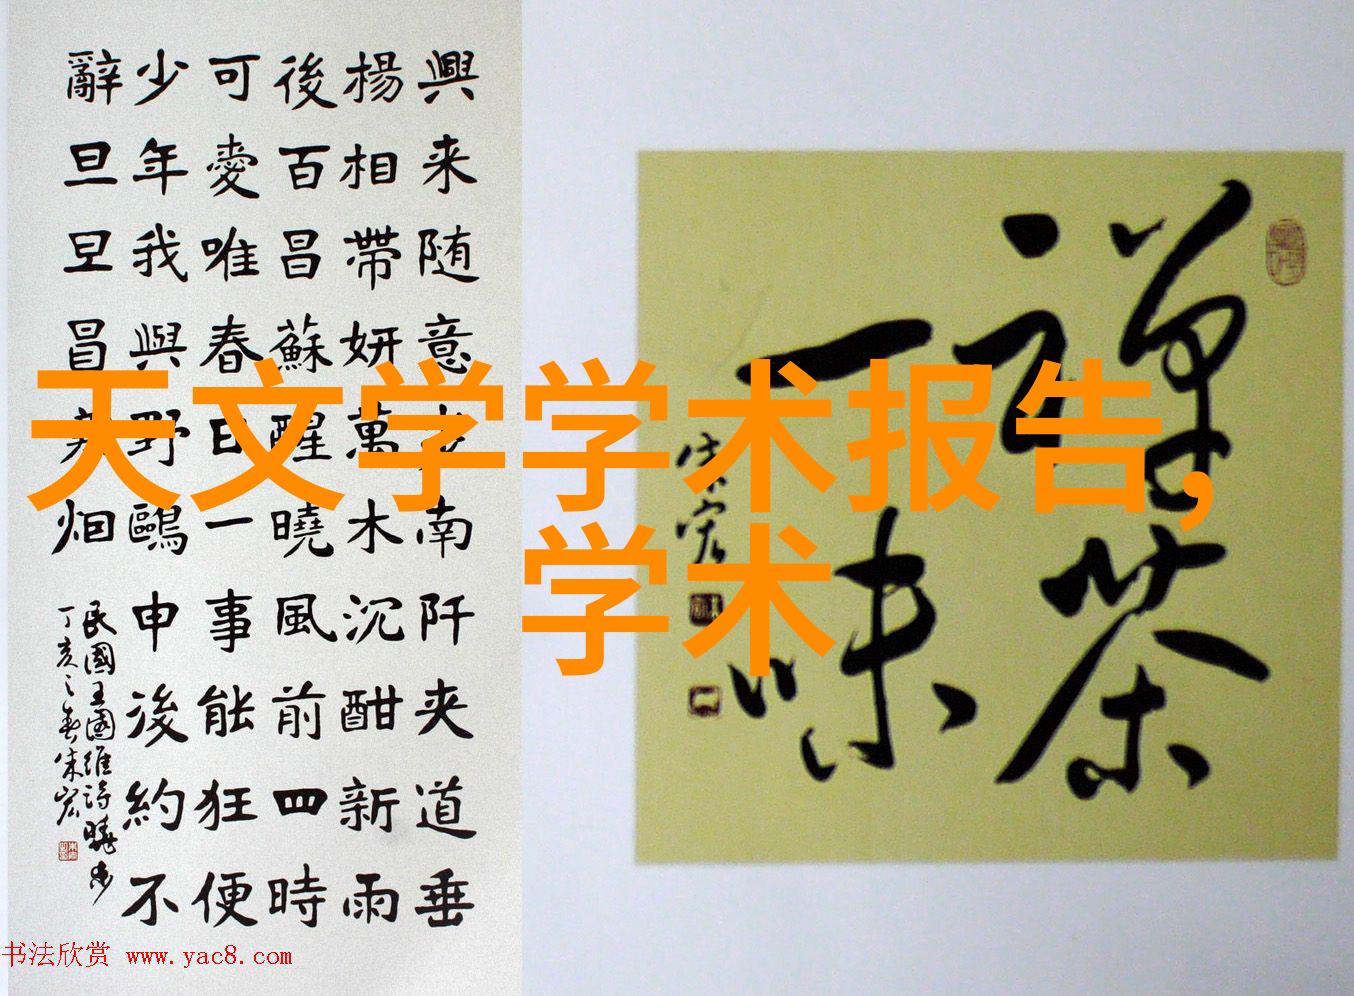 興来随意步南阡夹道垂
楊相帶妍萬木沉酣新雨
後百昌蘇醒曉風前四時
可愛唯春日一事能狂便
少年我與野鷗申後約不
辭旦旦冒寒烟
民國王國維詩曉步
丁亥之春朱宏
禅茶
一味
朱宏
天文学学术报告,
学术
书法欣赏 www.yac8.com